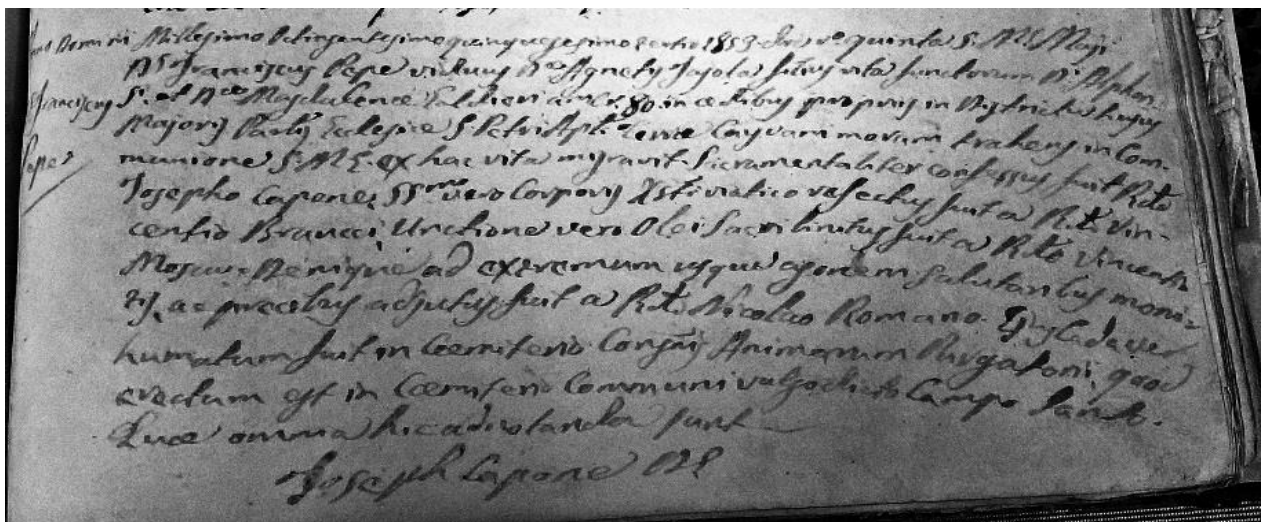 Anno Domini Millesimo Octingentesimo quinquagesimo tertio 1853. Die vo quinta S. Ms. Maji
Ds. Franciscus Pepe viduus Dae Agnetis Jajola filius vita functorum Di. Alphon-
Franciscus
si et Dae Magdalenae Caldieri annor. 80. in aedibus propriis in districtu hujus
Pepe
Majoris Parlis Ecclesiae S. Petri Apli. Terrae moram trahens in Com-
munione S. M. E. ex hac vita migravit. Sacramentaliter confessus fuit Rdo
Josepho Capone, SSmo vero Corporis Xsti viatico refectus fuit a R. D. Vin-
centio Brancci, Unctione vero Olei Sacri linitus fuit a R. Do Vincentio
Denique ad extremum usque agonem salutaribus moni-
tis, ac precibus adjutus fuit a R. D. Nicolao Romano. Ejus Cadaver
humatum fuit in Coemiterio Congnis Animarum Purgatorii, quod
erectum est in Coemiterio Communi vulgo dicto Campo Santo.
Quae omnia hic adnotanda sunt
Joseph Capone